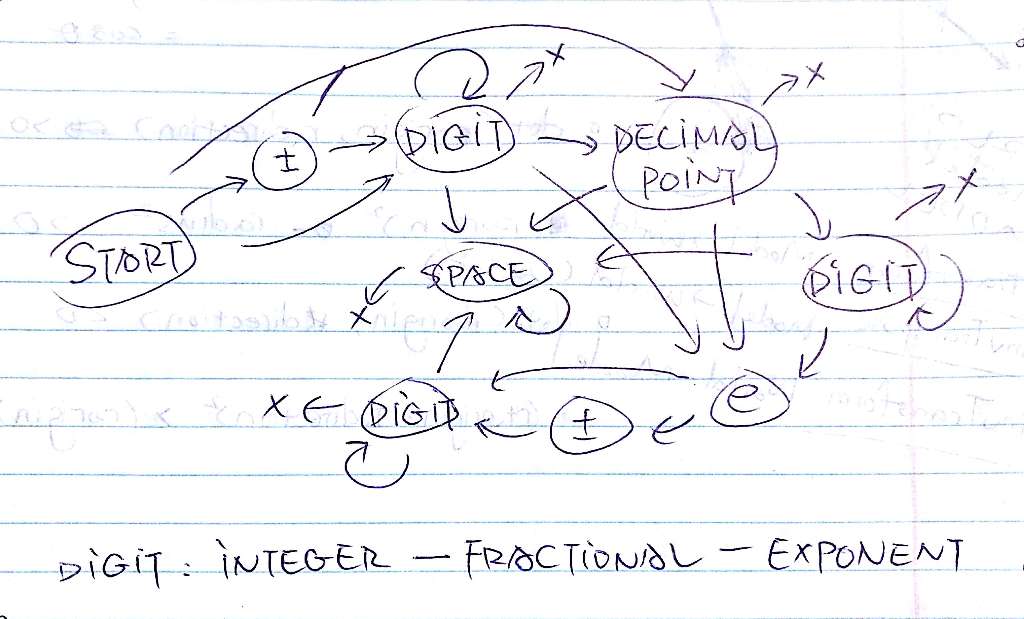 X
X
± DIGIT DECIMAL
POINT
X
START SPACE DIGIT
X
X DIGIT ± e
DIGIT: INTEGER — FRACTIONAL — EXPONENT